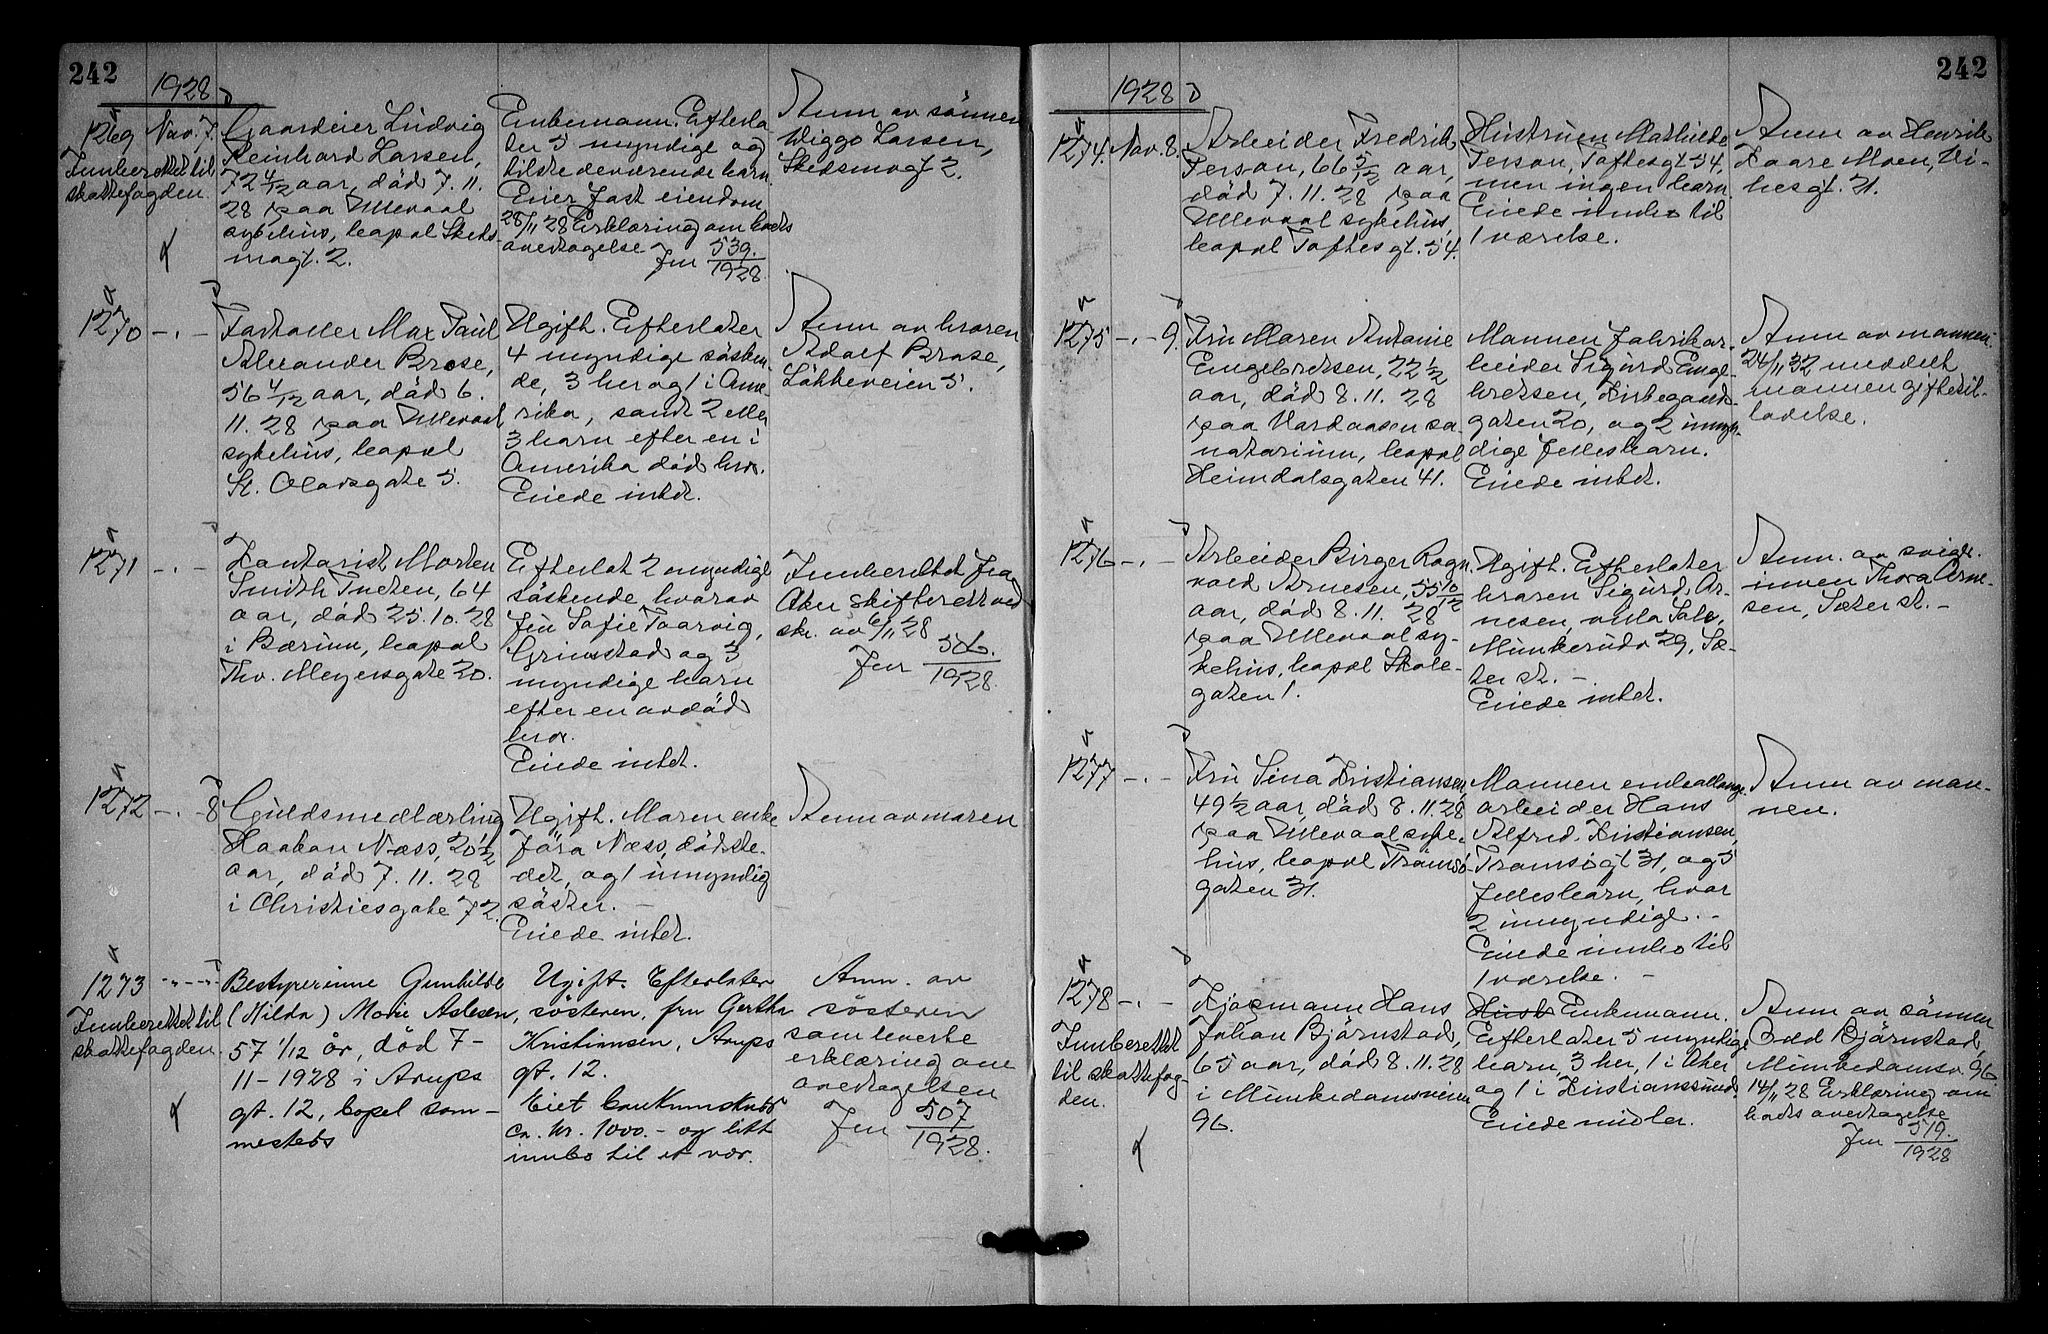 242
1928
1269 Nov. 7.
Innberettet til
skattefogden.
Gaardeier Ludvig
Reinhard Larsen,
72 4/12 aar, död 7. 11.
28 paa Ullevaal
sykehus, bopæl Skeds
mogt. 2.
Enkemann. Efterla
ter 5 myndige og
tilstedeværende barn.
Eier fast eiendom
28/11 28 Erklæring om bods
overtagelse
Jnr 539.
1928.
Anm av sönnen
Wiggo Larsen,
Skedsmogt 2.
1270 - . -
Fortoller Max Paul
Alexander Brose,
56 4/12 aar, död 6.
11. 28 paa Ullevaal
sykehus, bopæl
St. Olavsgate 5.
Ugift. Efterlater
4 myndige sösken
de, 3 her og 1 i Ame
rika, samt 2 eller
3 barn efter en i
Amerika död bror.
Eiede intet.
Anm av broren
Adolf Brose,
Lökkeveien 5.
1271 - . -
Kontorist Morten
Smith Tveten, 64
aar, död 25. 10. 28
i Bærum, bopæl
Thv. Meyersgate 20.
Efterlot 2 myndige
söskende hvorav
fru Sofie Taarvig,
Grimstad og 3
myndige barn
efter en avdöd
bror.
Eiede intet.
Innberettet fra
Aker skifterett ved
skr. av 6/11 28
Jnr 506.
1928.
1272 - . - 8
Guldsmedlærling
Haakon Næss, 20 1/2
aar, död 7. 11. 28
i Christiesgate 72.
Ugift. Moren enke
Jöra Næss, dödste-
det, og 1 umyndig
söster. -
Eiede intet.
Anm av moren
1273 - . -
Innberettet til
skattefogden.
Bestyrerinne Gunhilde
(Hilda) Marie Aslesen,
57 1/12 år, död 7-
11-1928 i Arups
gt. 12, bopel sam-
mesteds
Ugift. Efterlater
søsteren, fru Gertha
Kristiansen, Arups
gt. 12.
Eiet bankinnskudd
ca. kr. 1000.- og litt
innbo til et vær.
Anm. av
søsteren
som leverte
erklæring om
overtagelsen
Jnr 507
1928.
242
1928
1274. Nov. 8.
Arbeider Fredrik
Person, 66 5/12 aar,
död 7. 11. 28 paa
Ullevaal sykehus,
bopæl Toftesgt. 54.
Hustruen Mathilde
Person, Toftesgt 54,
men ingen barn
Eiede innbo til
1 værelse.
Anm av Henrik
Kaare Moen, Vi-
besgt. 21.
1275 - . - 9.
Fru Maren Antonie
Engebretsen, 22 1/2
aar, död 8. 11. 28
paa Vardaasen sa
natorium, bopæl
Heimdalsgaten 41.
Mannen fabrikar-
beider Sigurd Enge-
bretsen, Kirkegaards-
gaten 20, og 2 umyn-
dige fellesbarn.
Eiede intet.
Anm av mannen.
24/11 32 meddelt
mannen giftetil-
ladelse.
1276 - . -
Arbeider Birger Ragn
vald Arnesen, 55 10/12
aar, död 8. 11. 28
paa Ullevaal sy-
kehus, bopæl Skole-
gaten 1.
Ugift. Efterlater
broren Sigurd Ar-
nesen, villa Solv,
Munkerudv 29, Sæ-
ter st. -
Eiede intet.
Anm. av sviger-
innen Thora Arne-
sen, Sæter st. -
1277 - . -
Fru Sina Kristiansen,
49 1/2 aar, död 8. 11. 28
paa Ullevaal syke-
hus, bopæl Tromsö-
gaten 31.
Mannen emballage
arbeider Hans
Alfred Kristiansen,
Tromsögt 31, og 5
fellesbarn, hvor
2 umyndige. -
Eiede innbo til
1 værelse. -
Anm av man-
nen.
1278 - . -
Innberettet
til skattefog-
den.
Kjöpmann Hans
Johan Björnstad,
65 aar, död 8. 11. 28
i Munkedamsveien
96.
Hust Enkemann.
Efterlater 5 myndige
barn, 3 her, 1 i Aker
og 1 i Kristianssund.
Eiede midler.
Anm av sönnen
Odd Björnstad,
Munkedamsv. 96
14/11 28 Erklæring om
bods overtagelse
Jnr 519.
1928